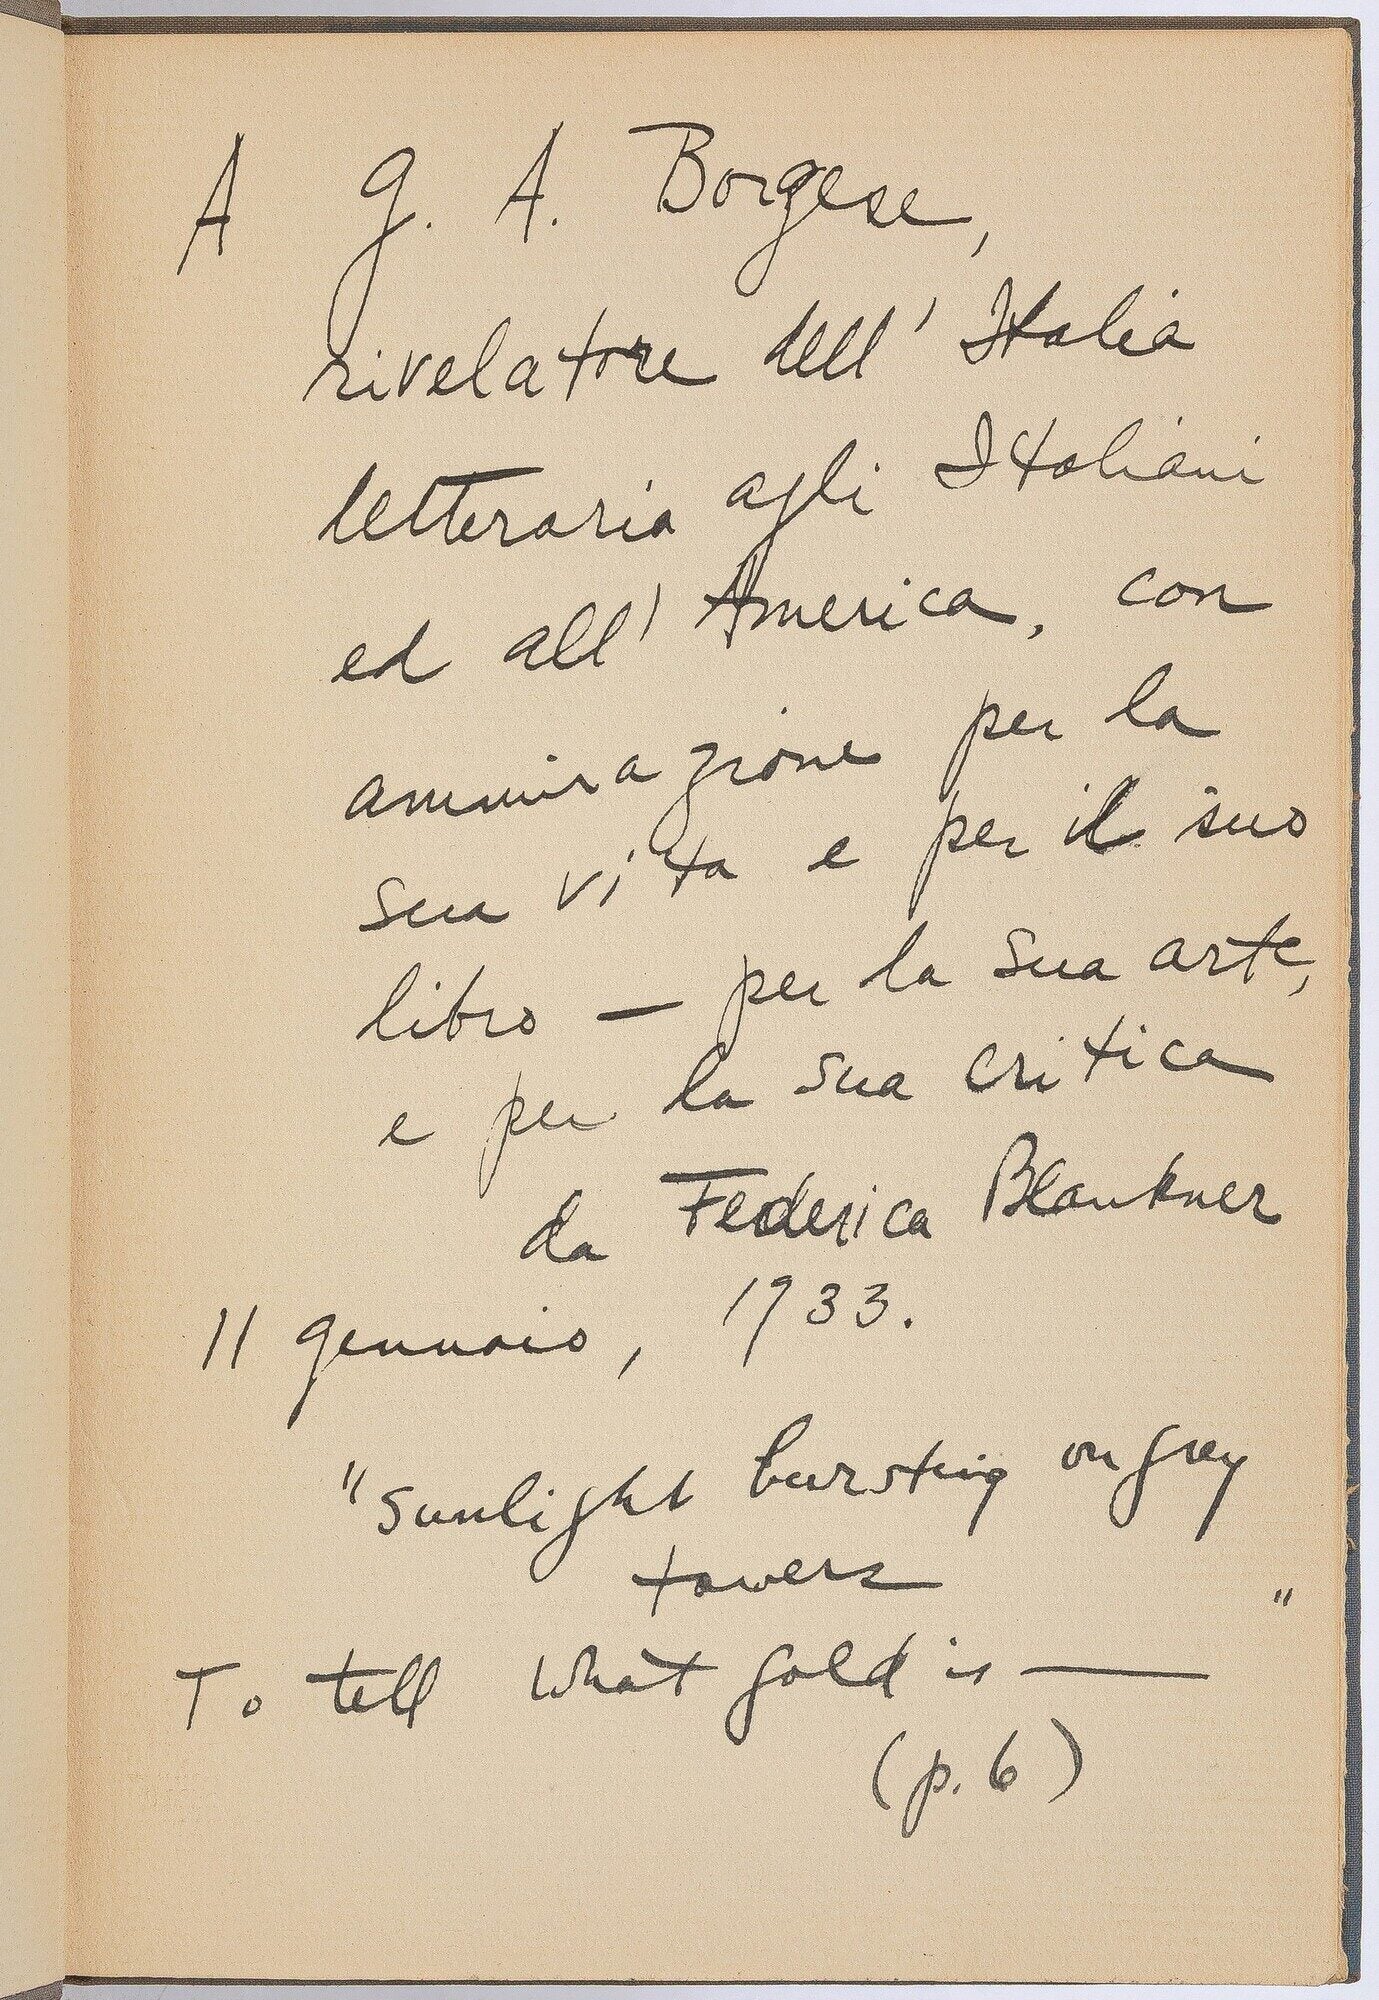 A G. A. Borgese,
rivelatore dell' Italia
letteraria agli Italiani
ed all' America, con
ammirazione per la
sua vita e per il suo
libro — per la sua arte,
e per la sua critica
da Federica Blankner
11 gennaio, 1933.
"Sunlight bursting on grey
towers
To tell what gold is —"
(p. 6)